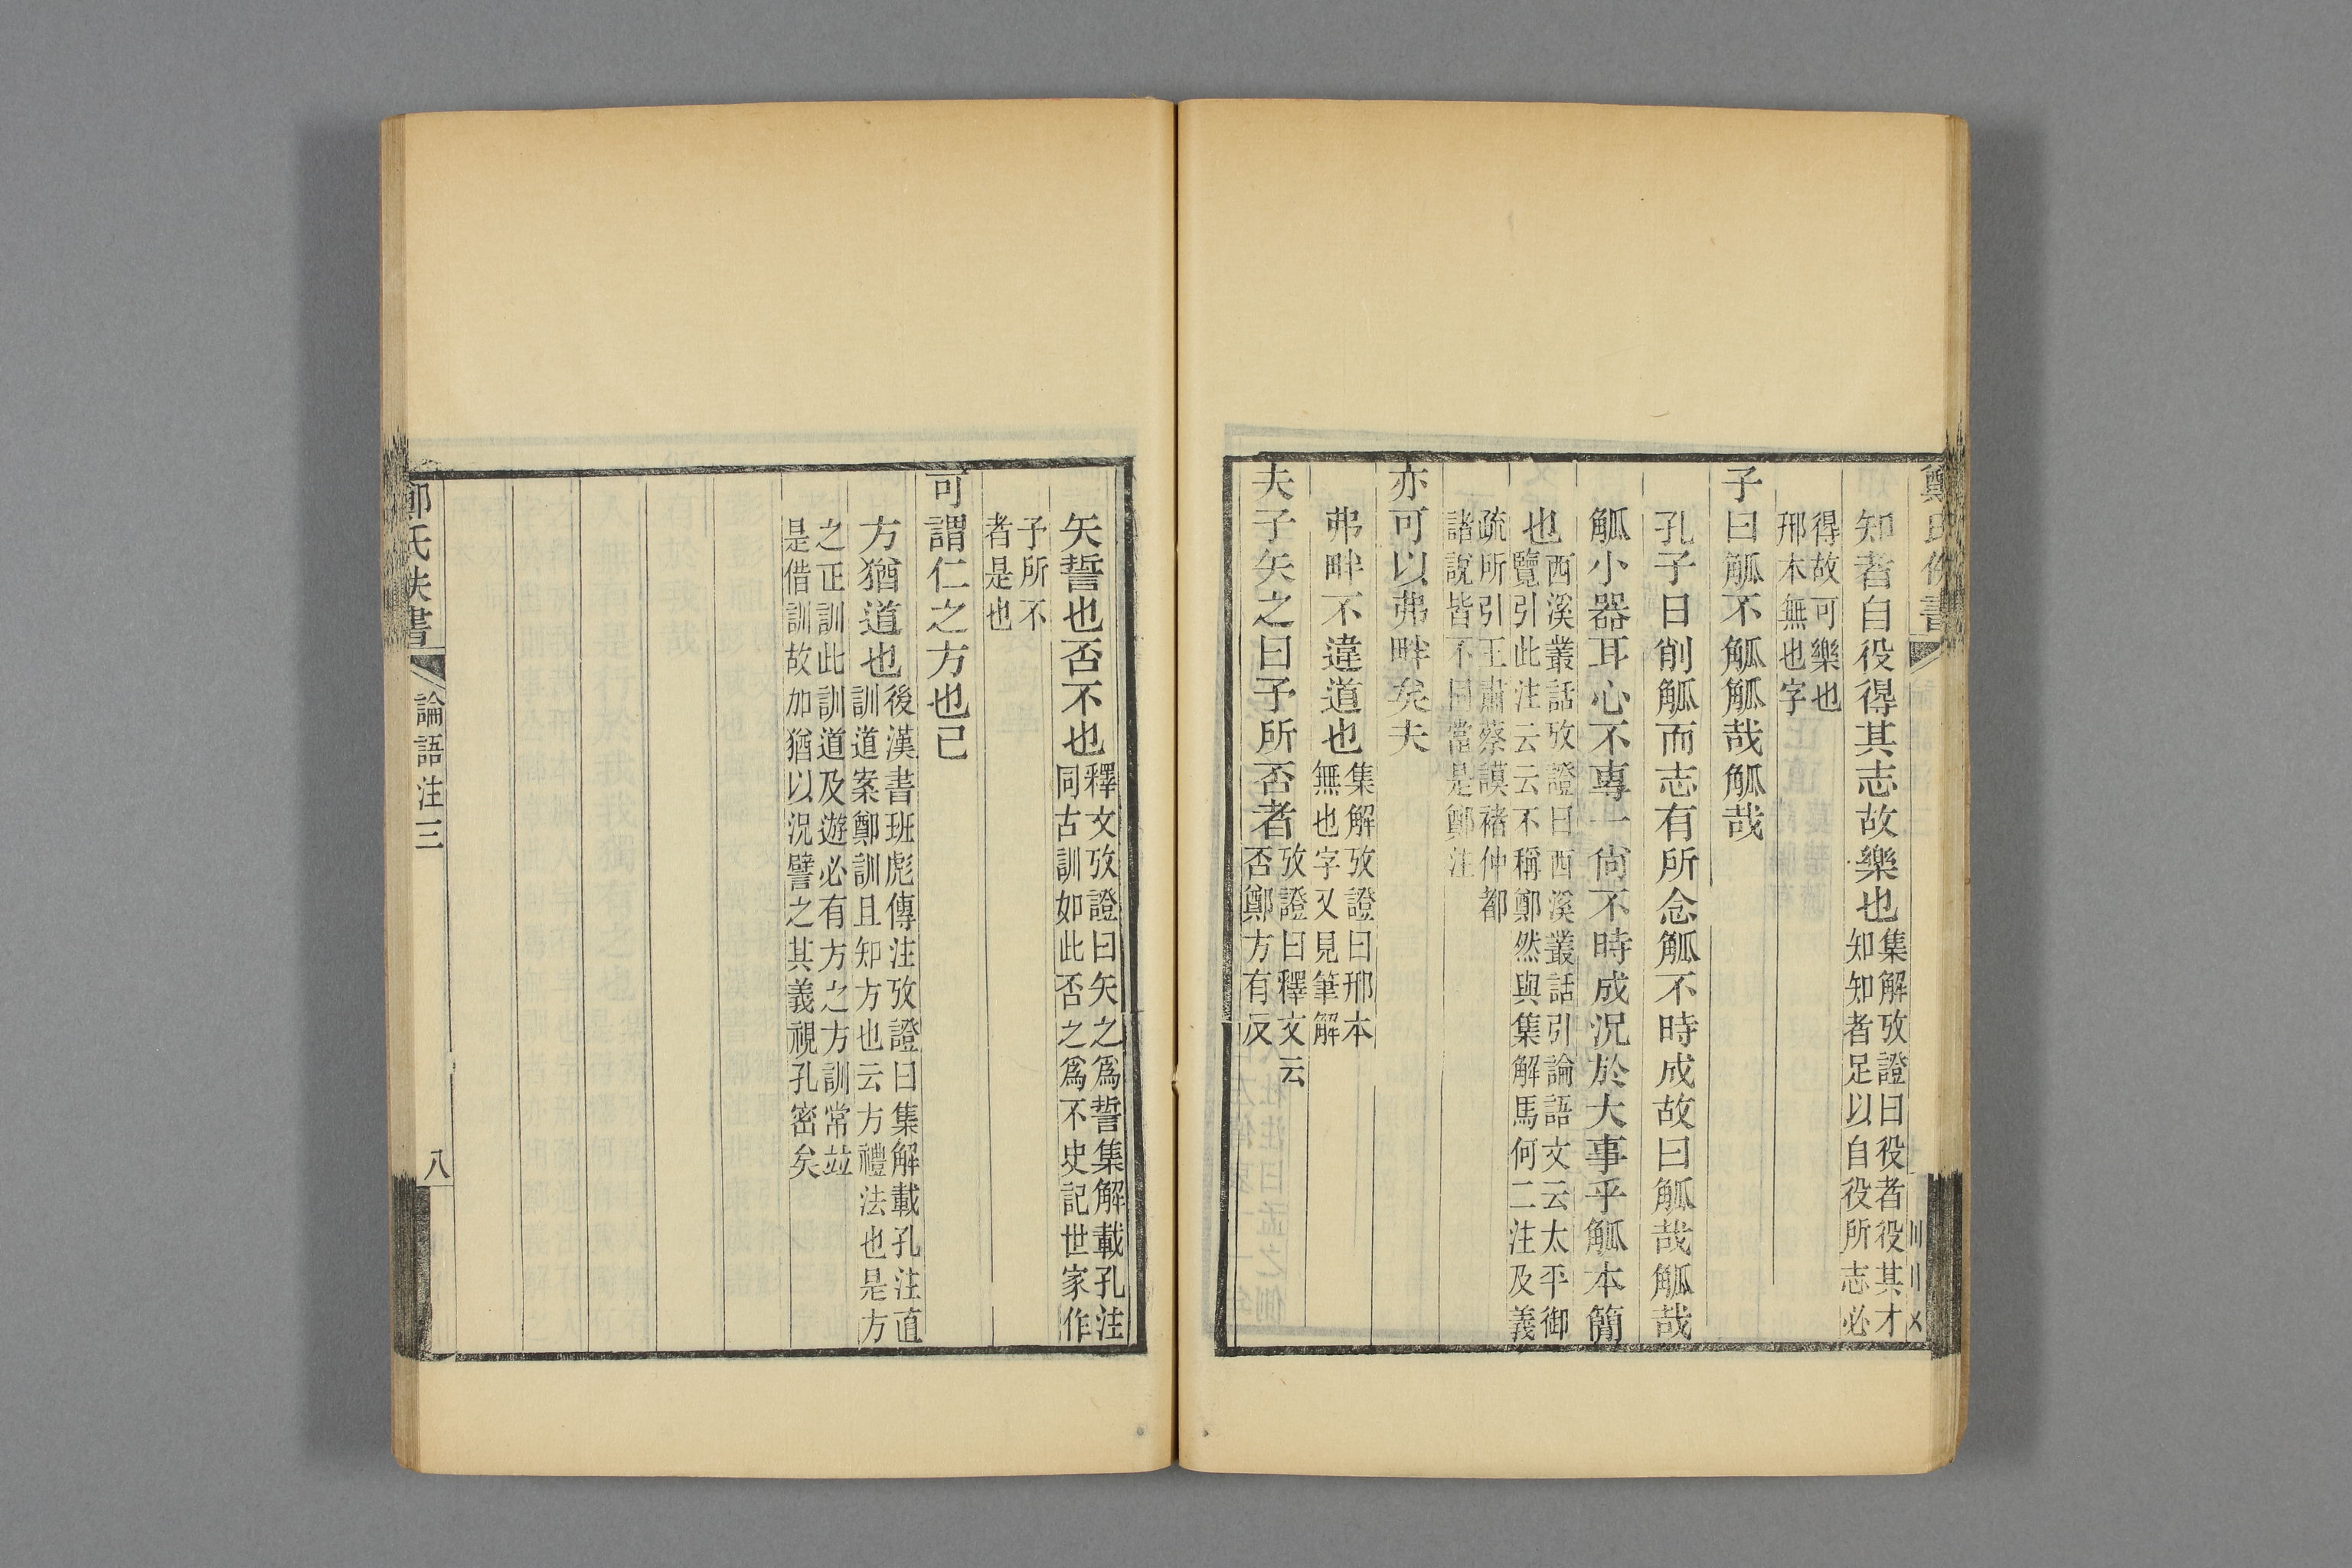 知者自役得其志故樂也集解攷證曰役者役其才知知者足以自役所志必
得故可樂也邢本無也字
子曰觚不觚觚哉觚哉
孔子曰削觚而志有所念觚不時成故曰觚哉觚哉
觚小器耳心不專一尙不時成況於大事乎觚本簡
也西溪叢話攷證曰西溪叢話引論語文云太平御覽引此注云云不稱鄭然與集解馬何二注及義
疏所引王肅蔡謨褚仲都諸說皆不同當是鄭注
亦可以弗畔矣夫
弗畔不違道也集解攷證曰邢本無也字又見筆解
夫子矢之曰予所否者攷證曰釋文云否鄭方有反
矢誓也否不也釋文攷證曰矢之爲誓集解載孔注同古訓如此否之爲不史記世家作
予所不者是也
可謂仁之方也已
方猶道也後漢書班彪傳注攷證曰集解載孔注直訓道案鄭訓且知方也云方禮法也是方
之正訓此訓道及遊必有方之方訓常竝是借訓故加猶以況譬之其義視孔密矣
鄭氏佚書
論語注三
八